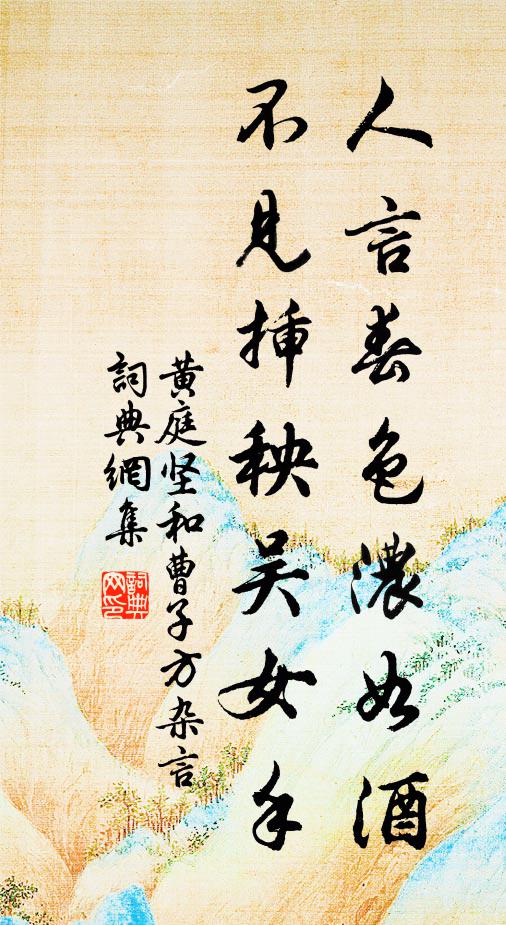 人言春色濃如酒
不見插秧吴女手
黄庭坚和曹子方杂言
詞典網集
詞典网印